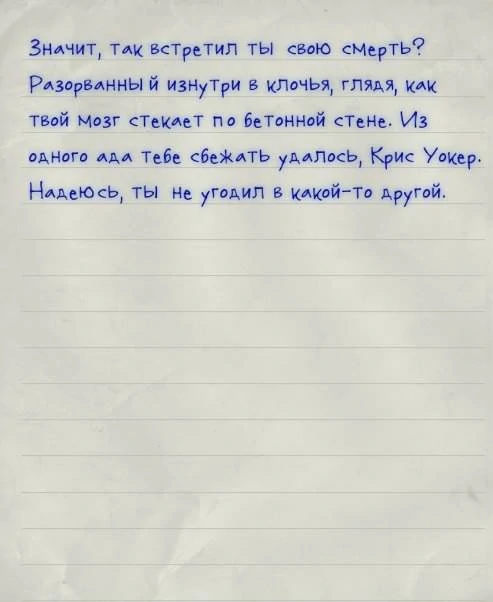 Значит, так встретил ты свою смерть?
Разорванный изнутри в клочья, глядя, как
твой мозг стекает по бетонной стене. Из
одного ада тебе сбежать удалось, Крис Уокер.
Надеюсь, ты не угодил в какой-то другой.